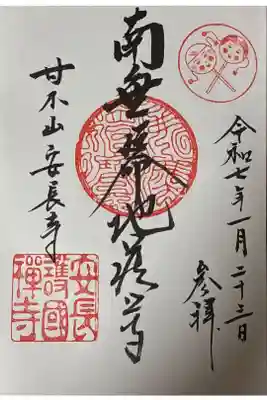 令和七年一月二十三日
参拝
南無 地蔵尊
甘木山安長寺
安長
護國
禪寺